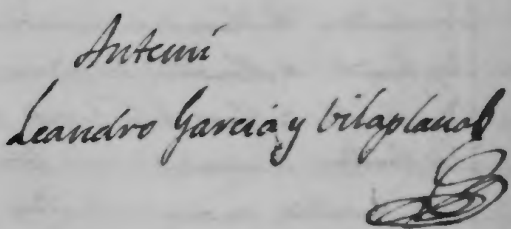 Antemí
Leandro García y Vilaplana